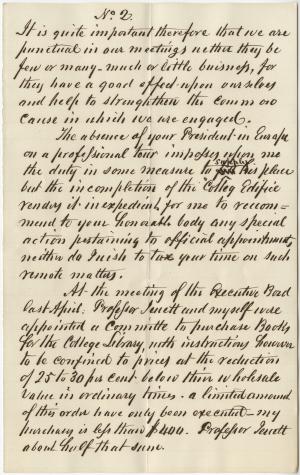 No 2.
It is quite important therefore that we are
punctual in our meetings nether they be
few or many - much or little buisness, for
they have a good effect upon ourselves
and help to strengthen the common
cause in which we are engaged.
The absence of your President in Europe
on a professional tour imposes upon me
the duty in some measure to supply his place
but the incompletion of the College Edifice
renders it inexpedient for me to recom=
mend to your honorable body any special
action pertaining to official appointments,
neither do I wish to tax your time on such
remote matters.
At the meeting of the Executive Board
last April. Professor Jewett and myself were
appointed a Committe to purchase Books
for the College Library, with instructions however
to be confined to prices at the reduction
of 25 to 30 per cent below their wholesale
value in ordinary times. a limited amount
of this order have only been executed - my
purchases is less than $400. Professor Jewett
about half that sum.